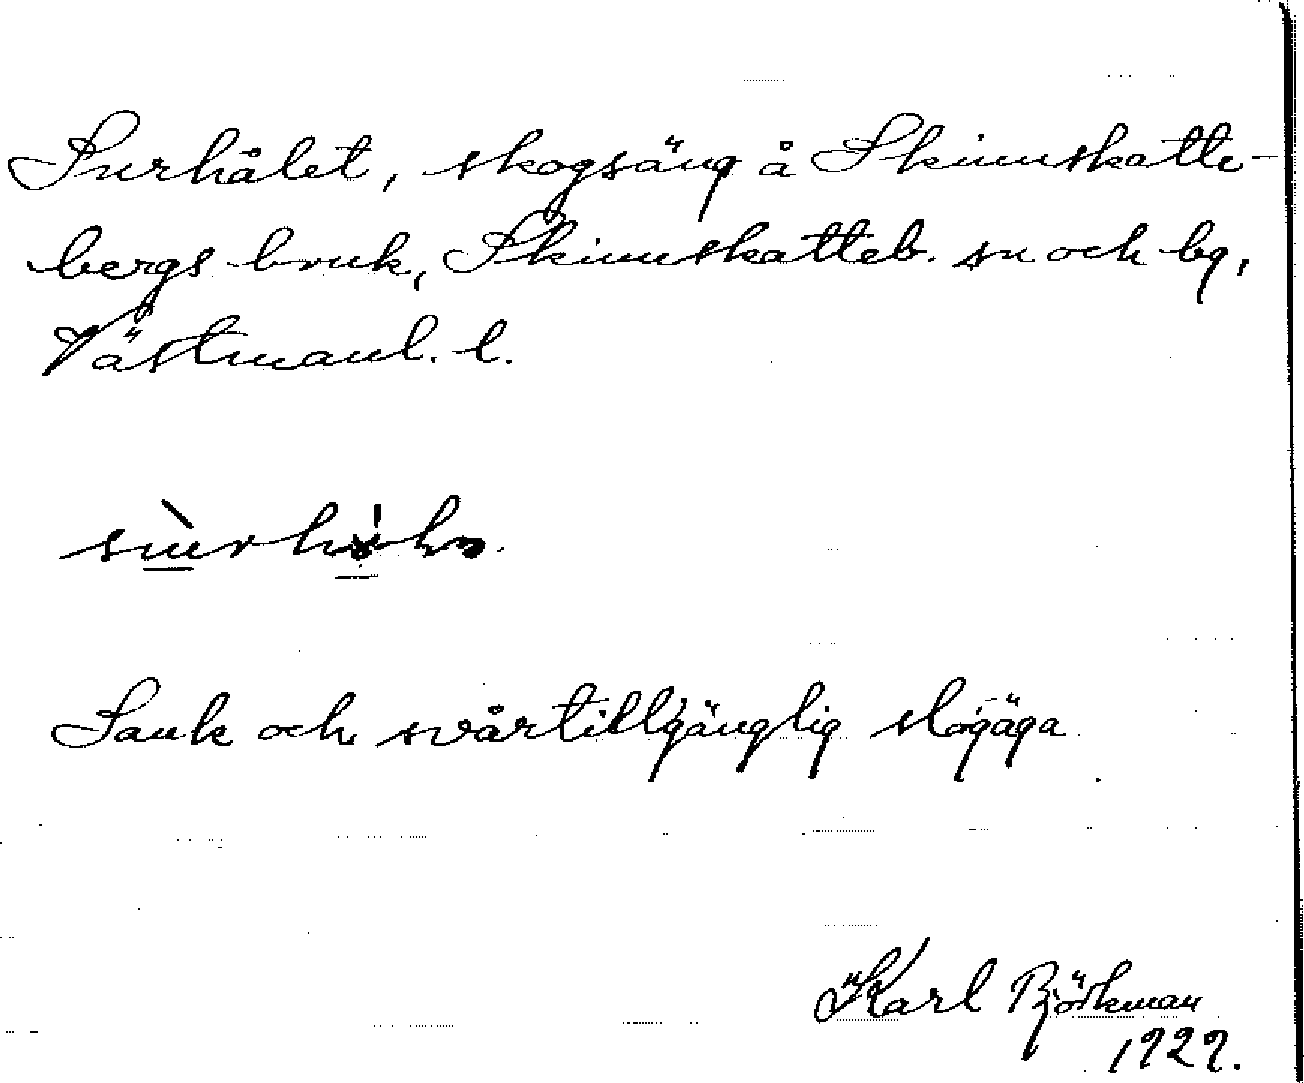 Surhålet, skogsäng å Skinnskatte-
bergs bruk, Skinnskatteb. sn och bg,
Västmanl. l.
Sank och svårtillgänglig slogäga
Karl Björkman
1929.